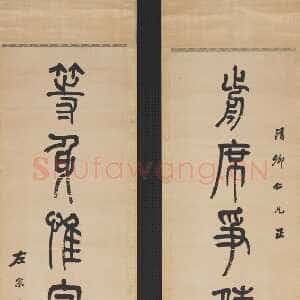 前席爭
清卿仁兄正
等身惟
左宗
Shufawang.CN